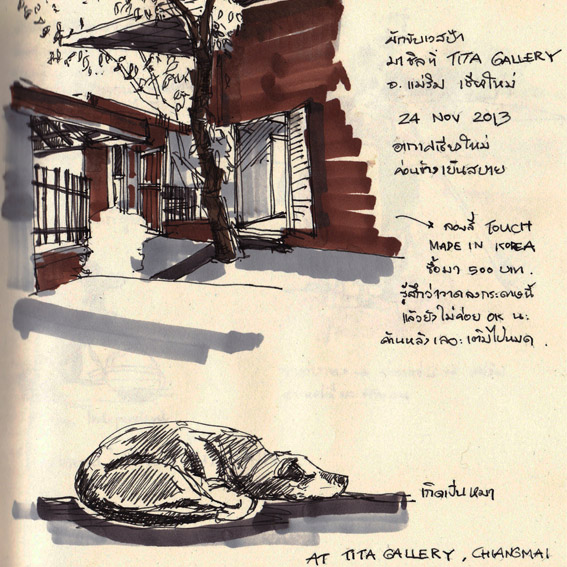 นักขับเวสป้า
มาชิลที่ TITA GALLERY
อ. แม่ริม เชียงใหม่
24 NOV 2013
อากาศเชียงใหม่
ค่อนข้างเย็นสบาย
ลองสี TOUCH
MADE IN KOREA
ซื้อมา 500 บาท.
รู้สึกว่าวาดลงกระดาษนี้
แล้วยังไม่ค่อย OK นะ
ด้านหลังเลอะเต็มไปหมด.
เกิดเป็นหมา
AT TITA GALLERY, CHIANGMAI